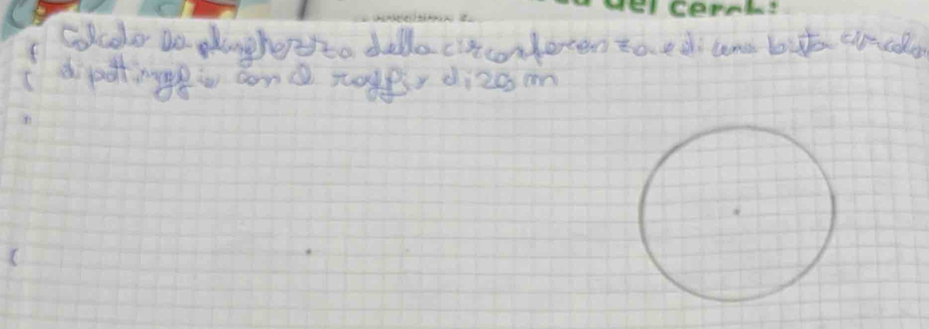 del cerchi
Calcola la lunghezza della circonferenza di una pista circolare
di pattinaggio con il raggio di 20 m